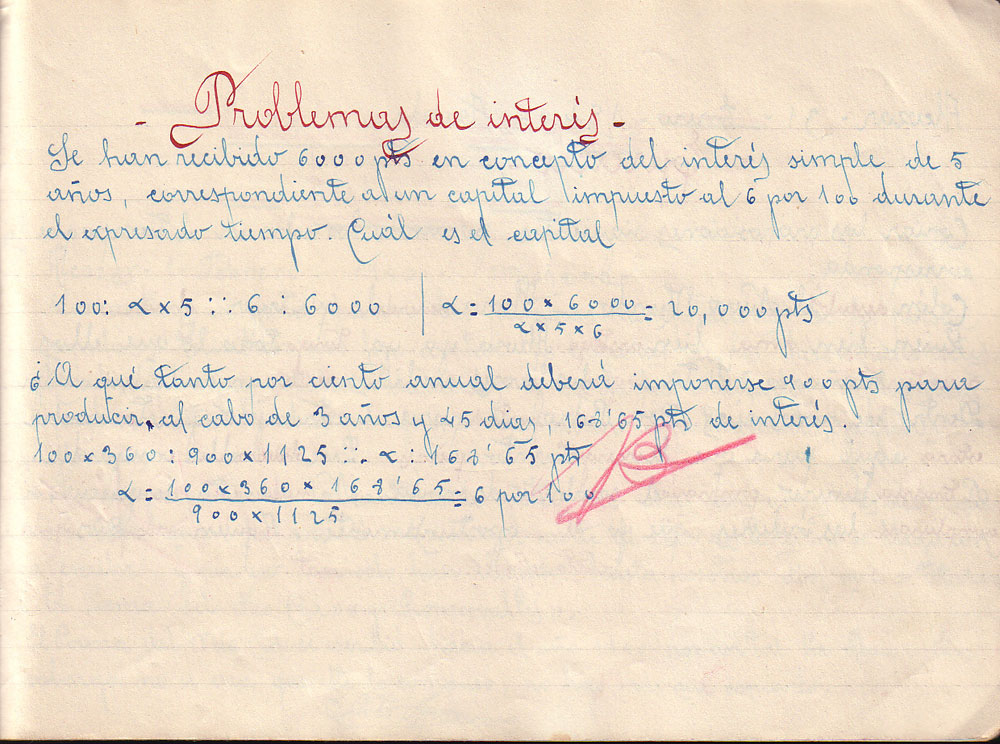 - Problemas de interés -
Se han recibido 6000 pts en concepto del interés simple de 5
años, correspondiente a un capital impuesto al 6 por 100 durante
el expresado tiempo. Cuál es el capital
100 : x × 5 :: 6 : 6000 | x = 100 × 6000 / x × 5 × 6 = 20,000 pts
¿A qué tanto por ciento anual deberá imponerse 900 pts para
producir, al cabo de 3 años y 45 dias, 168'65 pts de interés.
100 × 360 : 900 × 1125 :: x : 168'65 pts
x = 100 × 360 × 168'65 / 900 × 1125 = 6 por 100